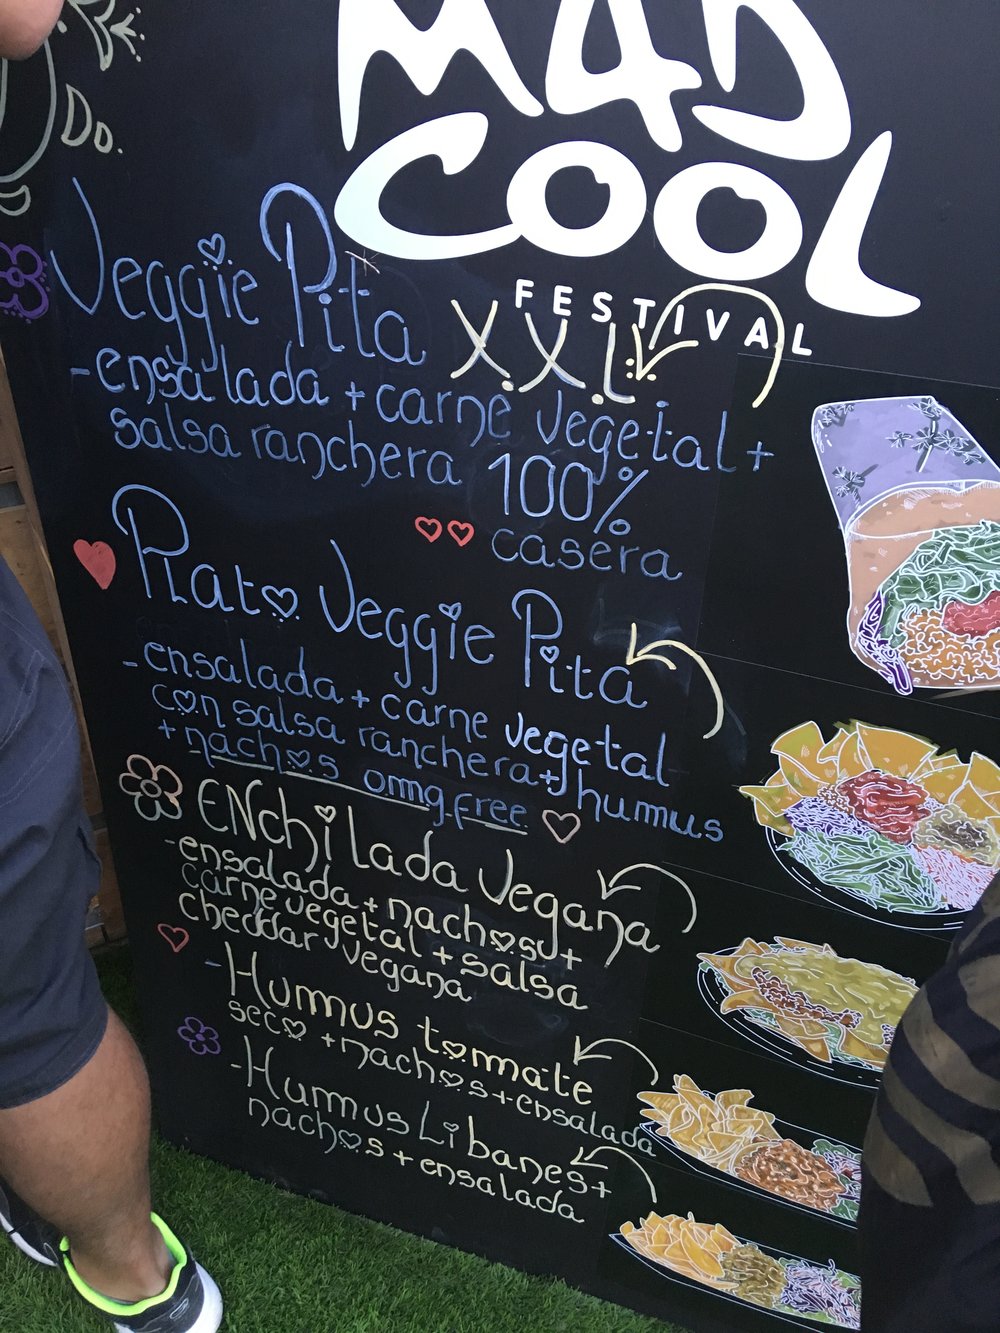 MAD
COOL
FESTIVAL
Veggie Pita XXL
-ensalada + carne vegetal +
salsa ranchera 100%
casera
Plato Veggie Pita
-ensalada + carne vegetal
con salsa ranchera + humus
+ nachos omg free
ENchiLada Vegana
-ensalada + nachos +
carne vegetal + salsa
cheddar vegana
-Humus tomate
seco + nachos + ensalada
-Humus Libanes +
nachos + ensalada